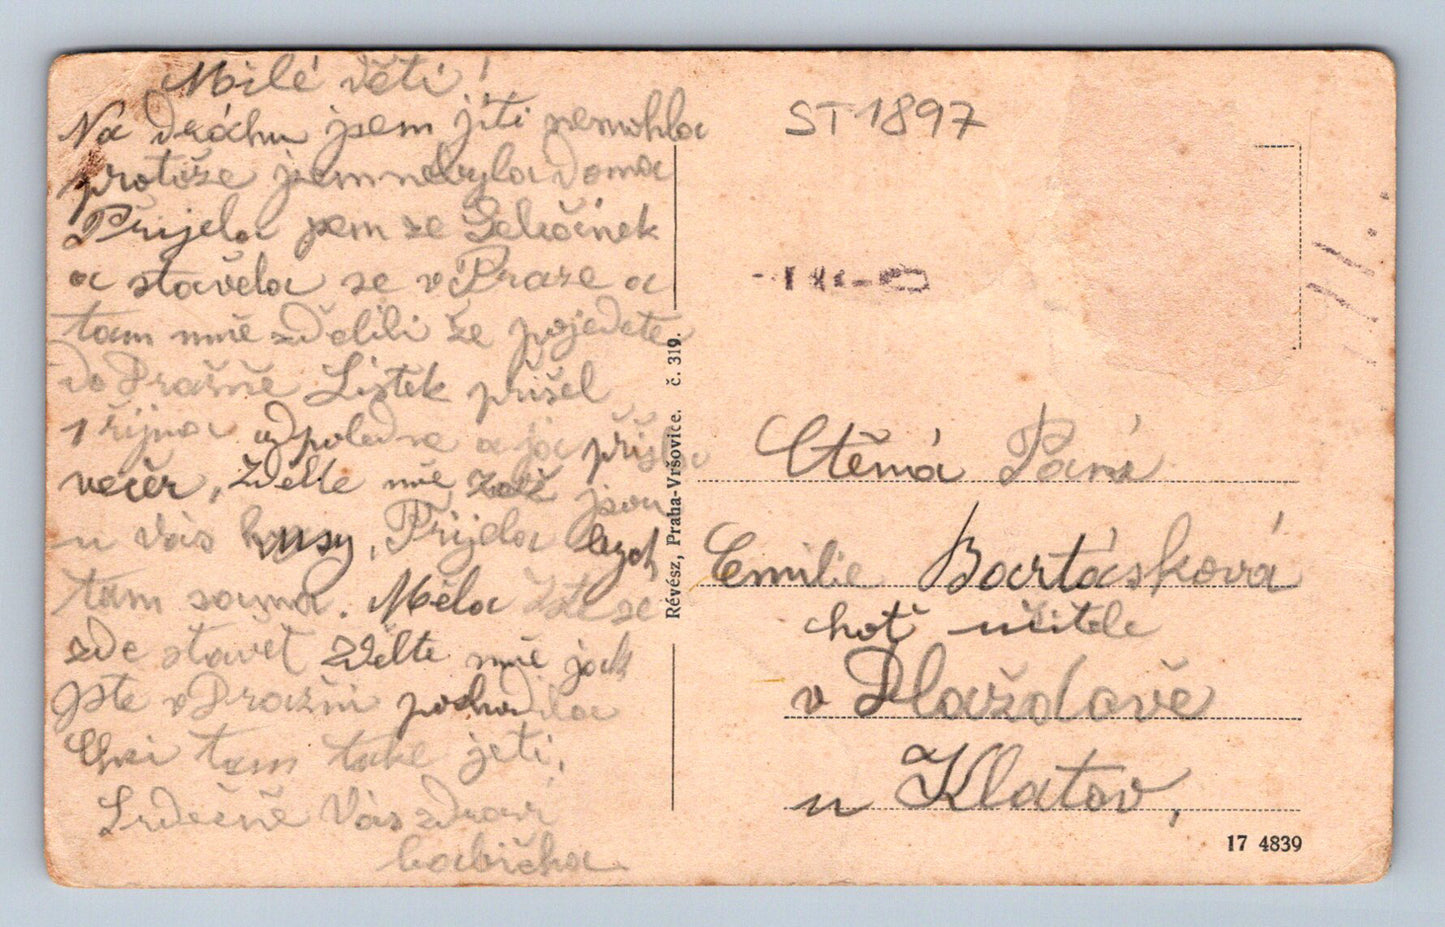 Milé děti!
Na dráhu jsem jíti nemohla
protože jsem nebyla doma
Přijela jsem ze
a stavěla se v Praze a
tam mně zdělili že pojedete
do Prašně Lístek přišel
1 října odpoledne a já přišla
večer, zdělte mně zač jsou
u Vás husy, Přijela bych
tam sama. Měla jste se
zde stavět zdělte mně jak
jste v Prazni pochodila
Chci tam také jeti,
Srdečně Vás zdraví
babička
Révész, Praha-Vršovice. č. 319.
ST 1897
Ctěná Paní
Emilie Bartásková
choť učitele
v Dlaždově
u Klatov,
17 4839